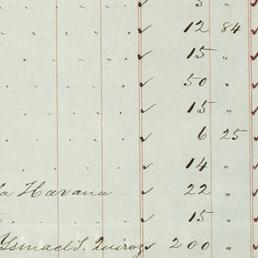 ✓ 3 " ✓
✓ 12 84 ✓
✓ 15 " ✓
✓ 50 " ✓
✓ 15 " ✓
✓ 6 25 ✓
✓ 14 " ✓
la Havana ✓ 22 " ✓
✓ 15 " ✓
Ysmael S. Quiroz ✓ 200 " ✓